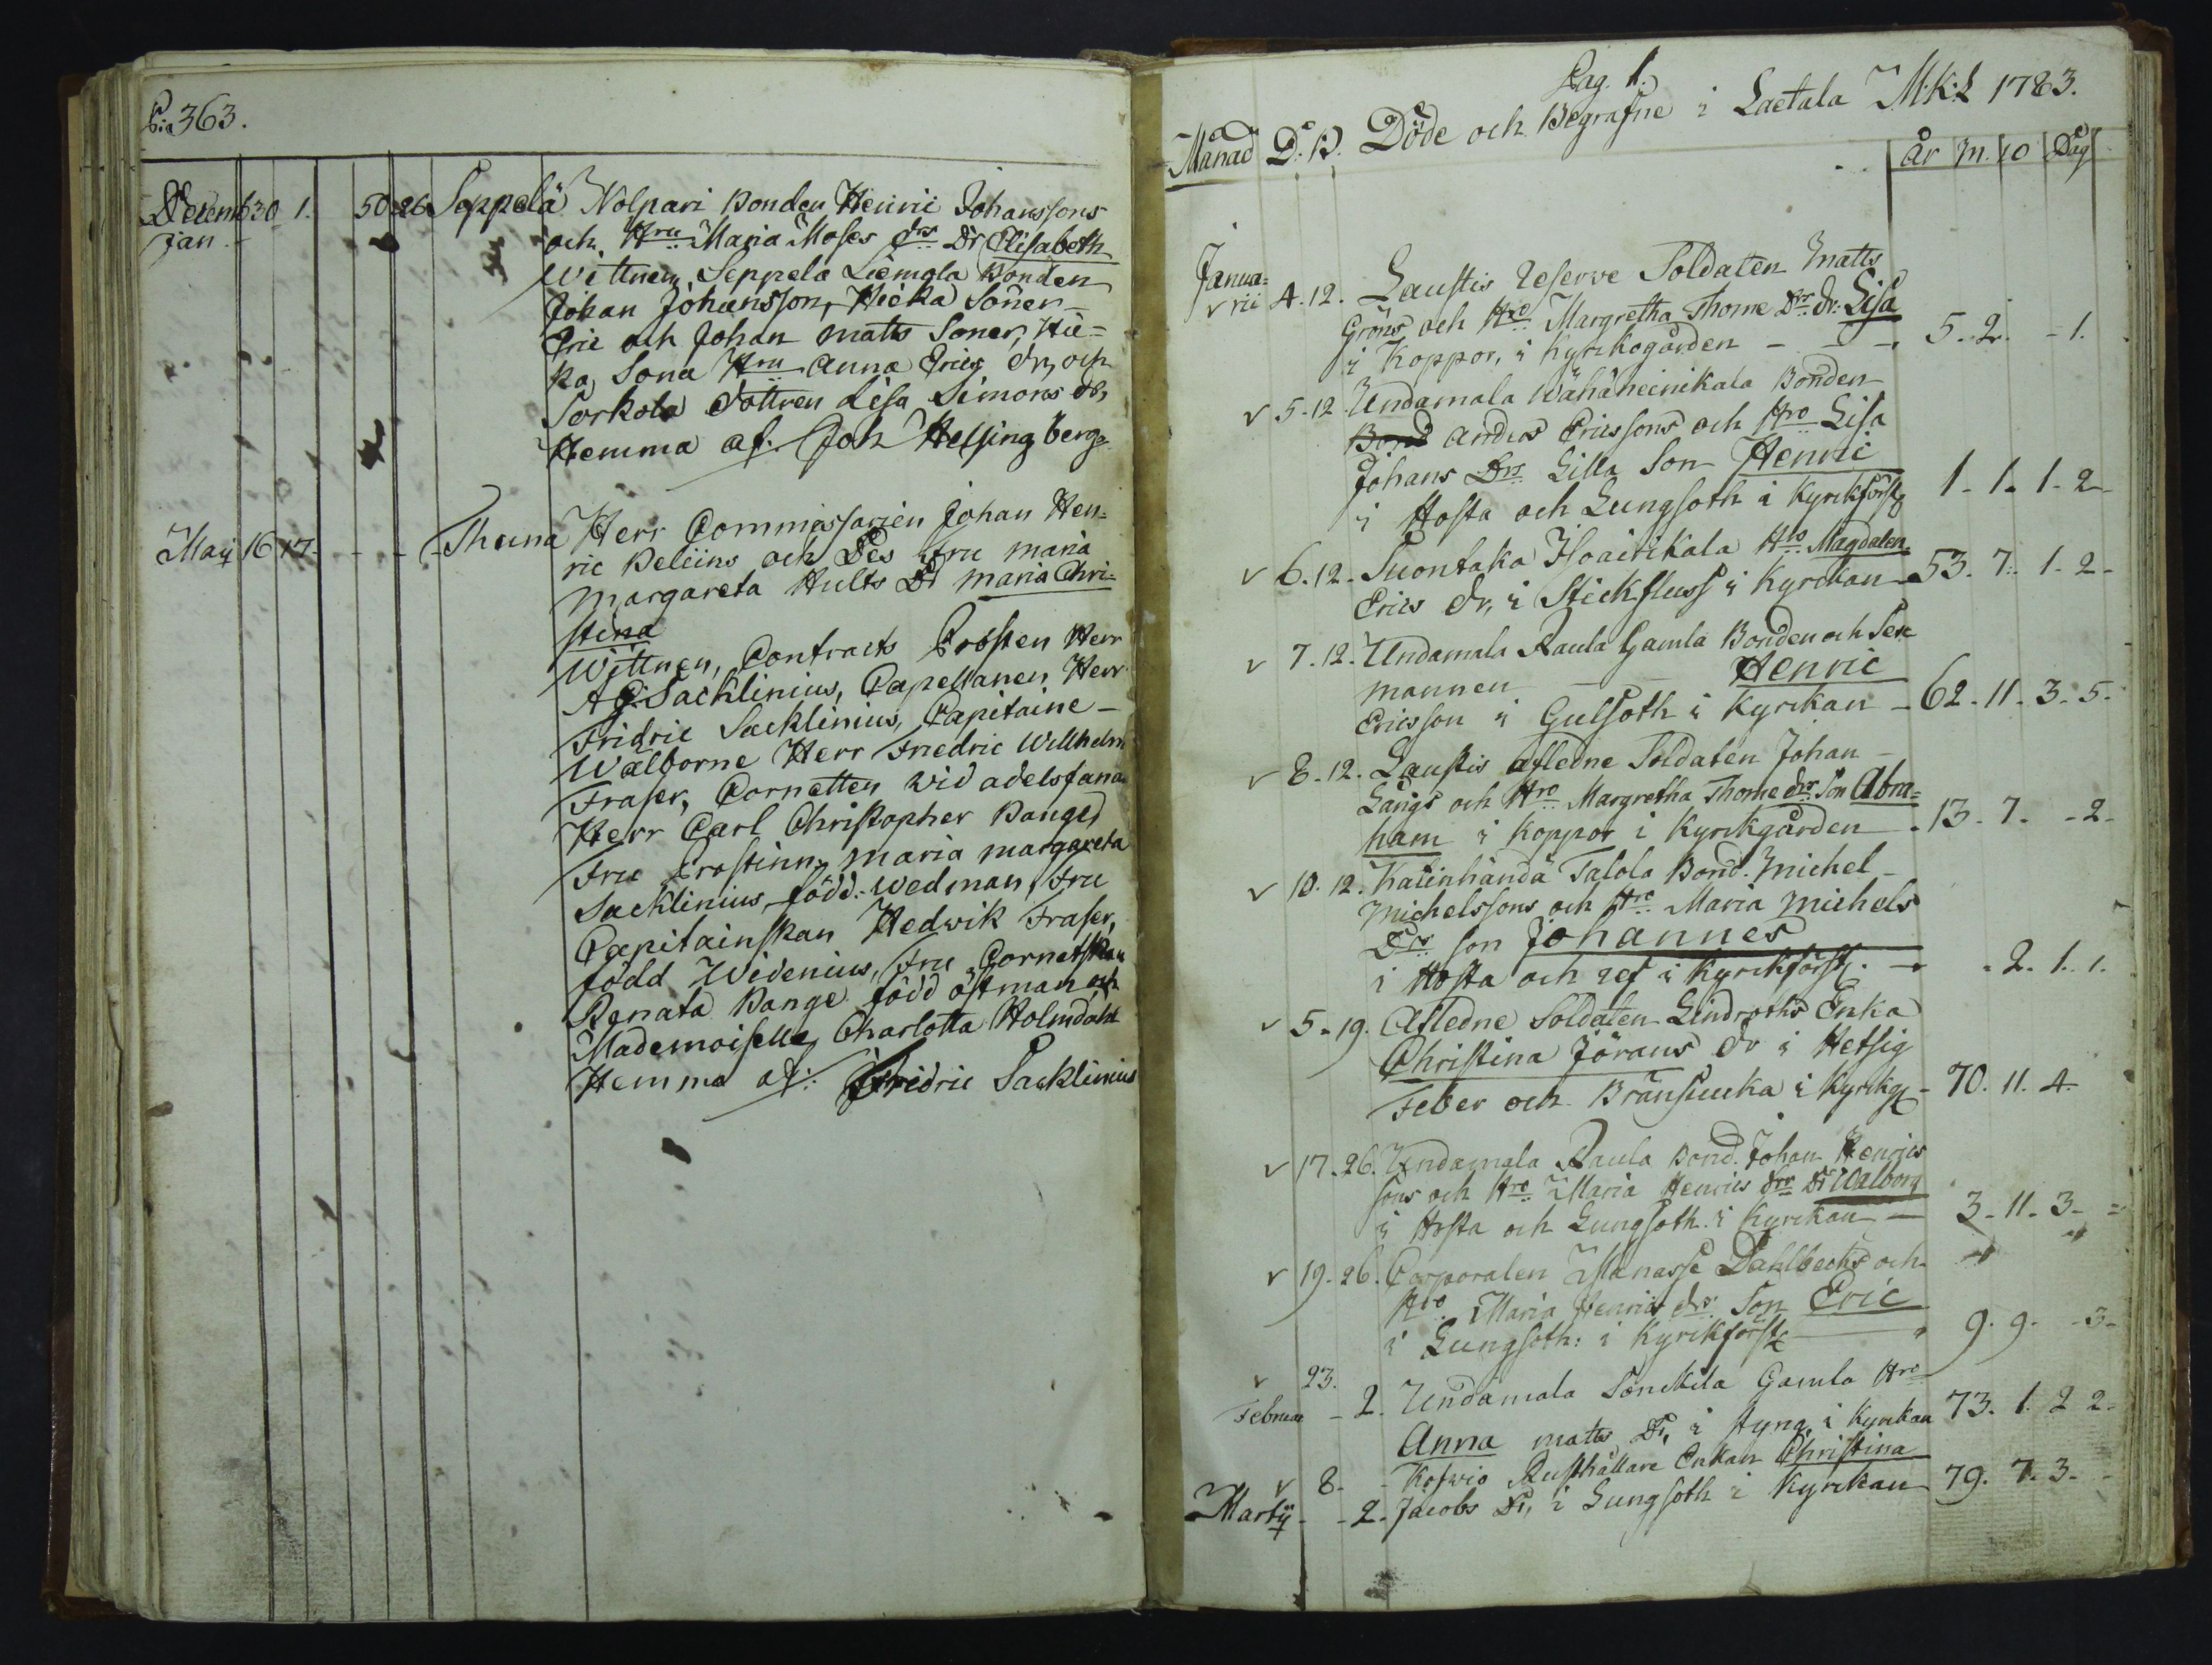 P: 363.
Decemb 30 1. 50 26 Seppelä Nolpari Bonden Henric Johanssons
Jan. och Hru Maria Moses drs Dr Elisabeth
Wittnen, Seppelä Liemola Bonden
Johan Johansson, Heicka Soner
Eric och Johan Matts Soner, Hu=
ka Sona Hru Anna Erics dr, och
Sorkola dottren Lisa Simons dr,
Hemma af. Joh Helsingberg
Maij 16 17 - - - Thuna Herr Commissarien Johan Hen=
ric Beliins och Des Fru Maria
Margareta Hults Dr Maria Chri=
stina
Wittnen, Contracts Prosten Herr
A G. Sacklinius, Capellanen Herr
Fridric Sacklinius, Capitaine
Wälborne Herr Friedric Willhelm
Fraser, Cornetten wid adelsfana
Herr Carl Christopher Bange,
Fru Prostinn, Maria Margareta
Sacklinius, född: Wedman, Fru
Capitainskan Hedwik Fraser,
född Widenius, Fru Cornetskan
Renata Bange född östman och
Mademoiselle Charlotta Holmdahl
Hemma af: Fridric Sacklinius
Pag. 1.
Månad D: B. Döde och Begrafne i Laetala M:K:L 1783.
år M. Dag
Janua=
rii 4. 12. Laustis Reserve Soldaten Matts
Gröns och Hro Margretha Thome Drs Dr: Lisa
i Koppor, i Kyrkogården - - - 5. 2. - 1.
5. 12 Undamala Wähäheinikala Bonden
Bond Anders Ericssons och Hro Lisa
Johans Drs Lilla Son Henric
i Hosta och Lungsoth i Kyrkförst 1. 1. 1. 2
6. 12. Suontaka Isoairikala Hro Magdalen
Erics dr, i Stickfluss i Kyrckan 53. 7. 1. 2
7. 12. Undamala Raula Gamla Bonden och Sex
mannen - - Henric
Ericsson i Gulsoth i Kyrkan 62. 11. 3. 5.
8. 12. Laustis afledne Soldaten Johan
Långs och Hro Margretha Thome drs Son Abra=
ham i Koppor i Kyrkgården 13. 7. - 2
10. 12. Katinhända Talola Bond. Michel
Michelssons och Hro Maria Michels
Drs Son Johannes
i Hosta och ref i Kyrkförst. - 2. 1. 1.
5. 19. Afledne Soldaten Lindroths Enka
Christina Jörans dr i Hetsig
Feber och Bränsiucka i Kyrkg 70. 11. 4.
17. 26. Undamala Raula Bond. Johan Henrics
sons och Hro Maria Henrics drs Dr Walborg
i Hosta och Lungsoth i Kyrckan 3. 11. 3
19. 26. Corporalen Manasse Dahlbecks och
Hro Maria Henrics drs Son Eric
i Lungsoth: i Kyrckförst 9. 9. - 3
23.
Februar - 2. Undamala Gamla Hro
Anna Matts Dr, i Hyng, i Kyrckan 73. 1. 2 2
8. Kofwio Rusthållare Enkan Christina
Martij - - 2. Jacobs Dr, i Lungsoth i Kyrckan 79. 7. 3.